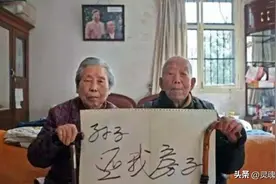 孙子
还我房子
头条 @灵魂